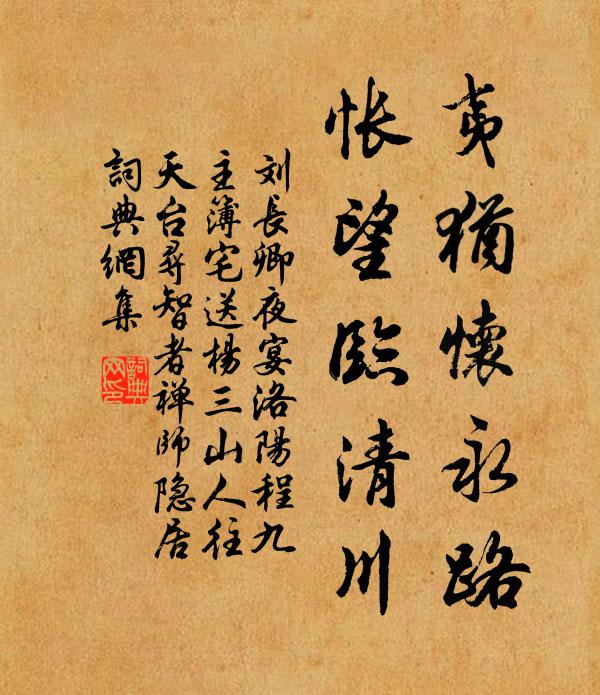 夷猶懷永路
悵望臨清川
刘長卿夜宴洛陽程九
主簿宅送楊三山人往
天台尋智者禅师隐居
詞典網集
詞典网印